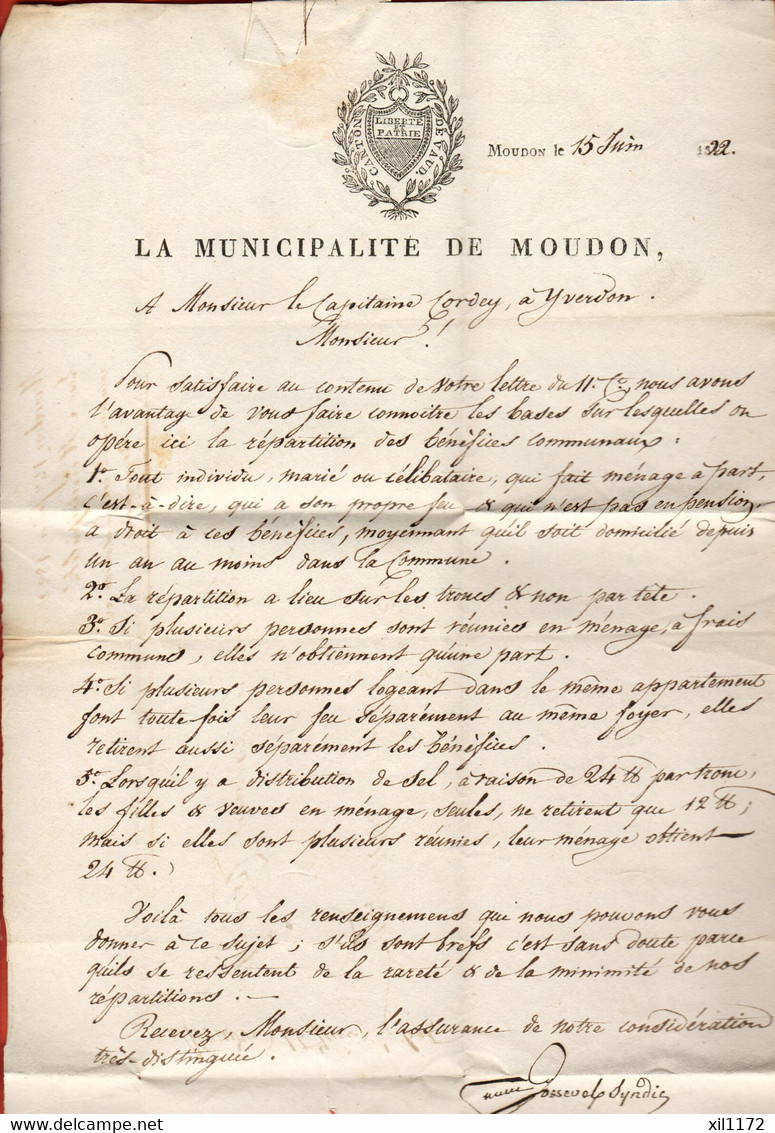 LIBERTÉ
ET
PATRIE
CANTON DE VAUD.
MOUDON le 15 Juin 1822.
LA MUNICIPALITÉ DE MOUDON,
A Monsieur le Capitaine Cordey, à Yverdon.
Monsieur !
Pour satisfaire au contenu de Votre lettre du 11e. Ct. nous avons
l'avantage de vous faire connoître les bases sur lesquelles on
opére ici la répartition des bénéfices communaux :
1o. Tout individu, marié ou célibataire, qui fait ménage à part,
c'est-à-dire, qui a son propre feu & qui n'est pas en pension,
a droit à ces bénéfices, moyennant qu'il soit domicilié depuis
un an au moins dans la Commune.
2o. La répartition a lieu sur les troncs & non par tête.
3o. Si plusieurs personnes sont réunies en ménage, à frais
communs, elles n'obtiennent qu'une part.
4o. Si plusieurs personnes logeant dans le même appartement
font toute fois leur feu séparément au même foyer, elles
retirent aussi séparément les bénéfices.
5o. Lorsqu'il y a distribution de sel, à raison de 24 ℔ par tronc,
les filles & veuves en ménage, seules, ne retirent que 12 ℔;
mais si elles sont plusieurs réunies, leur ménage obtient
24 ℔.
Voilà tous les renseignemens que nous pouvons vous
donner à ce sujet ; s'ils sont brefs c'est sans doute parce
qu'ils se ressentent de la rareté & de la minimité de nos
répartitions. —
Recevez, Monsieur, l'assurance de notre considération
très-distinguée.
Syndic
delcampe.net
xil1172